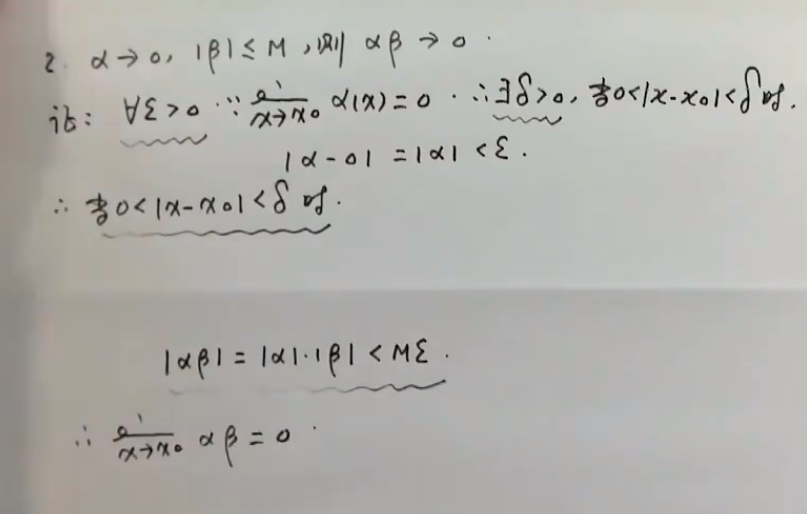 2. α→0, |β|≤M, 则 αβ→0.
证: ∀ε>0. ∵ lim x→x₀ α(x)=0. ∴∃δ>0, 当0<|x-x₀|<δ时.
|α-0|=|α|<ε.
∴ 当0<|x-x₀|<δ时.
|αβ|=|α|·|β|<Mε.
∴ lim x→x₀ αβ=0.